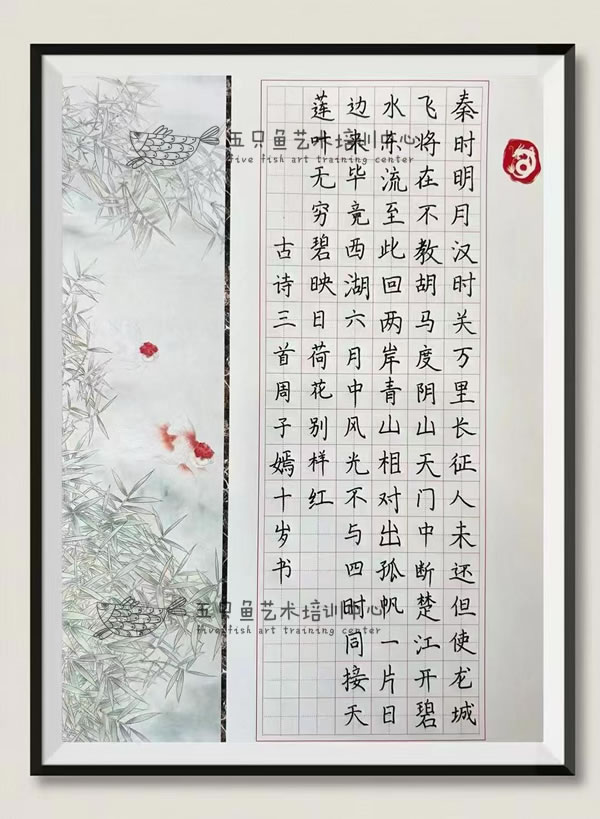 秦时明月汉时关万里长征人未还但使龙城
飞将在不教胡马度阴山天门中断楚江开碧
水东流至此回两岸青山相对出孤帆一片日
边来毕竟西湖六月中风光不与四时同接天
莲叶无穷碧映日荷花别样红
古诗三首周子嫣十岁书
五只鱼艺术培训中心
five fish art training center
五只鱼艺术培训中心
five fish art training center